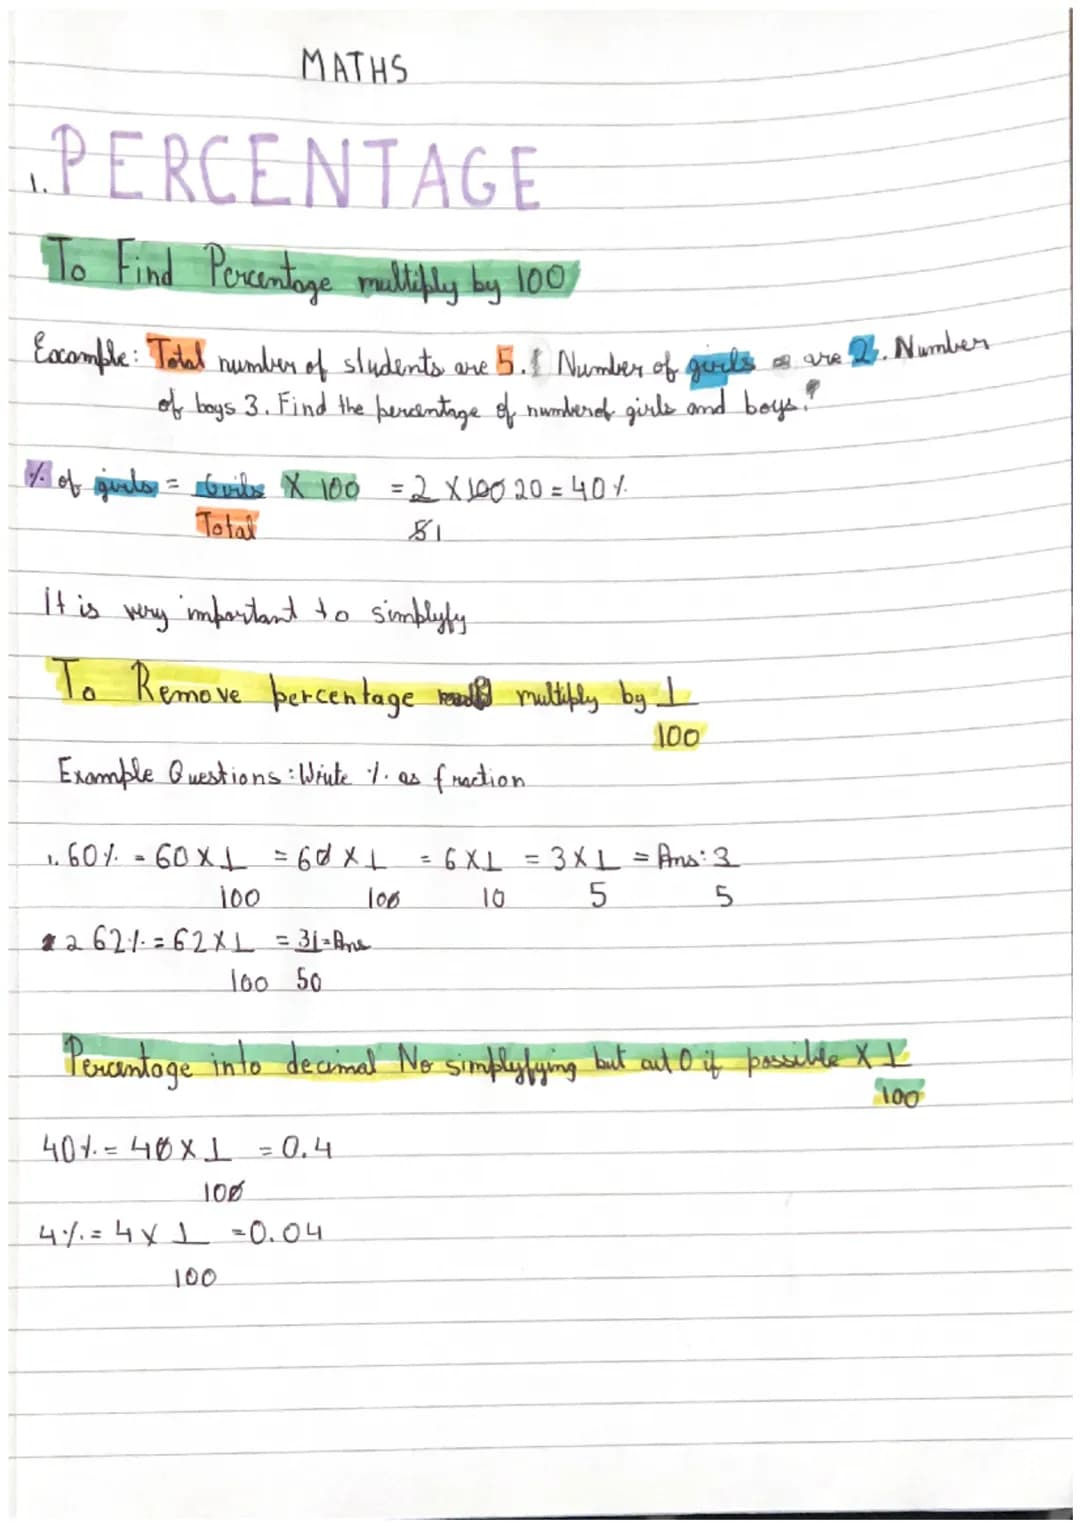 MATHS
1. PERCENTAGE
To Find Percentage multiply by 100
Example: Total number of students are 5. Number of girls are 2. Number
of boys 3. Find the percentage of number of girls and boys?
% of girls = Girls X 100 = 2 X 100 20 = 40%
Total 51
It is very important to simplyfy
To Remove percentage multiply by 1
100
Example Questions: Write % as fraction
1. 60% = 60 X 1 = 60 X 1 = 6 X 1 = 3 X 1 = Ans: 3
100 100 10 5 5
2 62% = 62 X 1 = 31 = Ans
100 50
Percentage into decimal No simplyfying but cut 0 if possible X 1
100
40% = 40 X 1 = 0.4
100
4% = 4 X 1 = 0.04
100